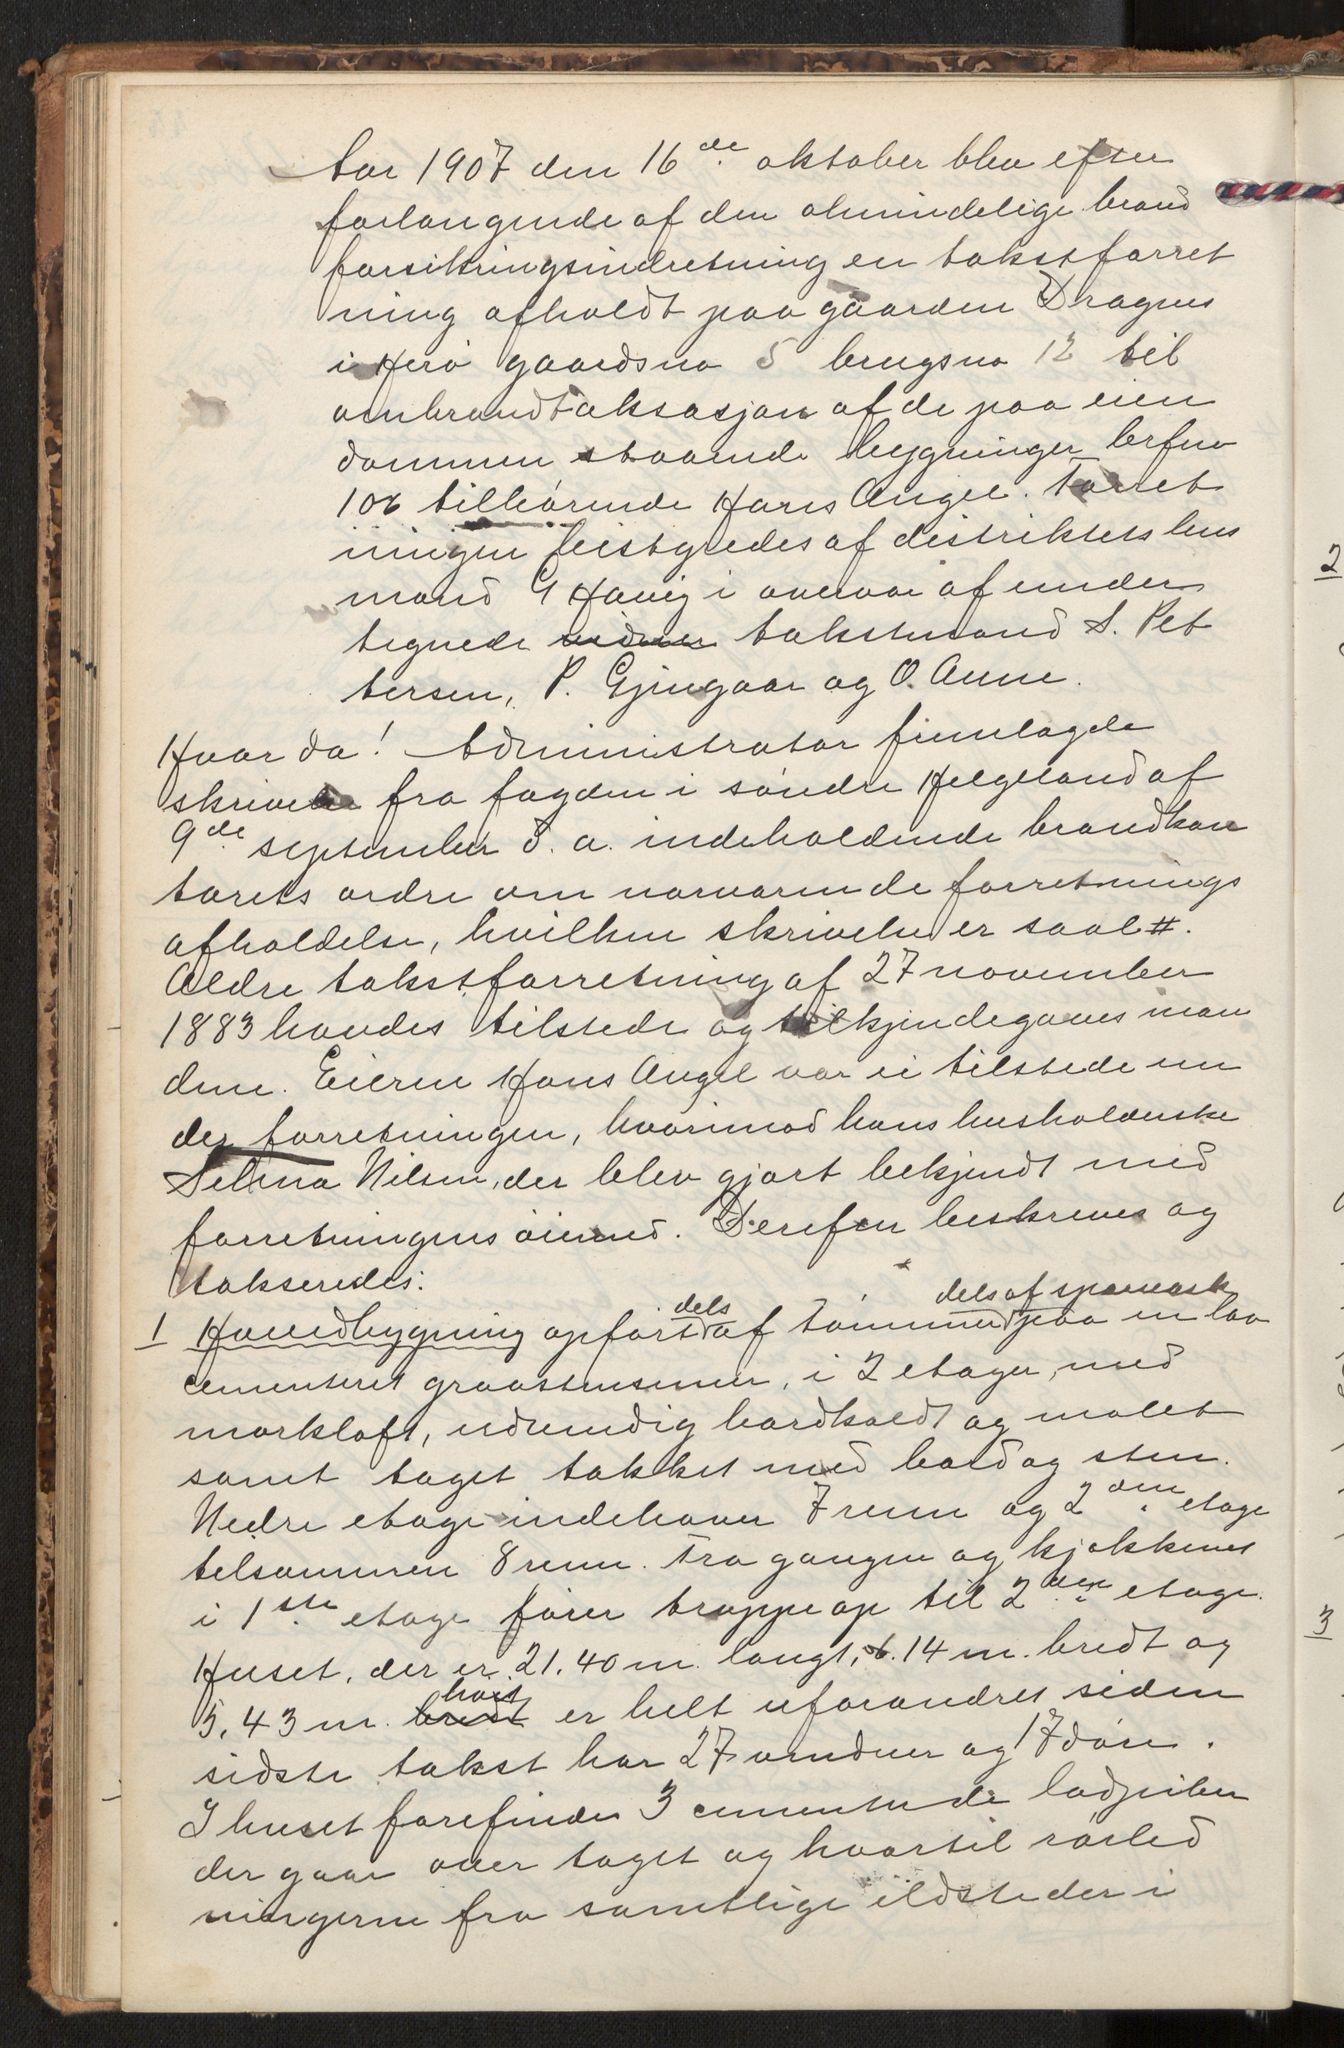 Aar 1907 den 16de oktober blev efter
forlangende af den almindelige brand
forsikringsindretning en takstforret
ning afholdt paa gaarden Dragnes
i Herø gaardsno 5 brugsno 12 til
ombrandtaksasjon af de paa eien
dommen staaende bygninger brfno
106 tilhørende Hans Angel. Forret
ningen beistyredes af distriktets lens
mand G Havig i overvær af under
tegnede takstmænd S. Pet
tersen, P. Gjengaar og O. Aune.
Hvor da! Administrator fremlagde
skrivelse fra fogden i søndre Helgeland af
9de september d. a. indeholdende brandkon
torets ordre om nærværende forretnings
afholdelse, hvilken skrivelse er saal #.
Ældre takstforretning af 27 november
1883 havdes tilstede og tilkjendegaves mæn
dene. Eieren Hans Angel var ei tilstede un
der forretningen, hvorimod hans husholderske
Selma Nilsen, der blev gjort bekjendt med
forretningens øiemed. Derefter beskreves og
takseredes:
1 Hovedbygning opført dels af tømmer dels af spærværk paa en lav
cementeret graastensmur, i 2 etager, med
mørkloft, udvendig bordkledt og malet
samt taget tækket med bord og sten.
Nedre etage indehaver 7 rum og 2den etage
tilsammen 8 rum. Fra gangen og kjøkkenet
i 1ste etage fører trappe op til 2den etage.
Huset, der er 21.40 m. langt, 6.14 m. bredt og
5,43 m. bredt høit er helt uforandret siden
sidste takst har 27 vinduer og 17 døre.
I huset forefindes 3 cementerede ladpiber
der gaar over taget og hvortil rørled
ningerne fra samtlige ildsteder i
2
3